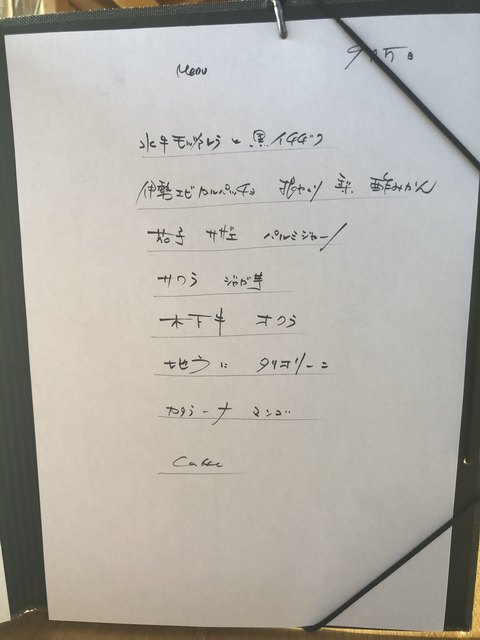 Menu
9月 日
水牛モッツァレラと黒イチヂク
伊勢エビカルパッチョ 酢みかん
茄子 サザエ パルミジャーノ
サワラ ジャガ芋
木下牛 オクラ
地うに タリオリーニ
カタラーナ マンゴー
Caffe